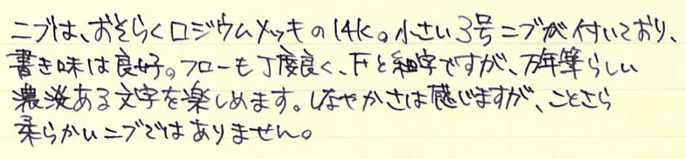 ニブは、おそらくロジウムメッキの14K。小さい3号ニブが付いており、
書き味は良好。フローも丁度良く、Fと細字ですが、万年筆らしい
濃淡ある文字を楽しめます。しなやかさは感じますが、ことさら
柔らかいニブではありません。